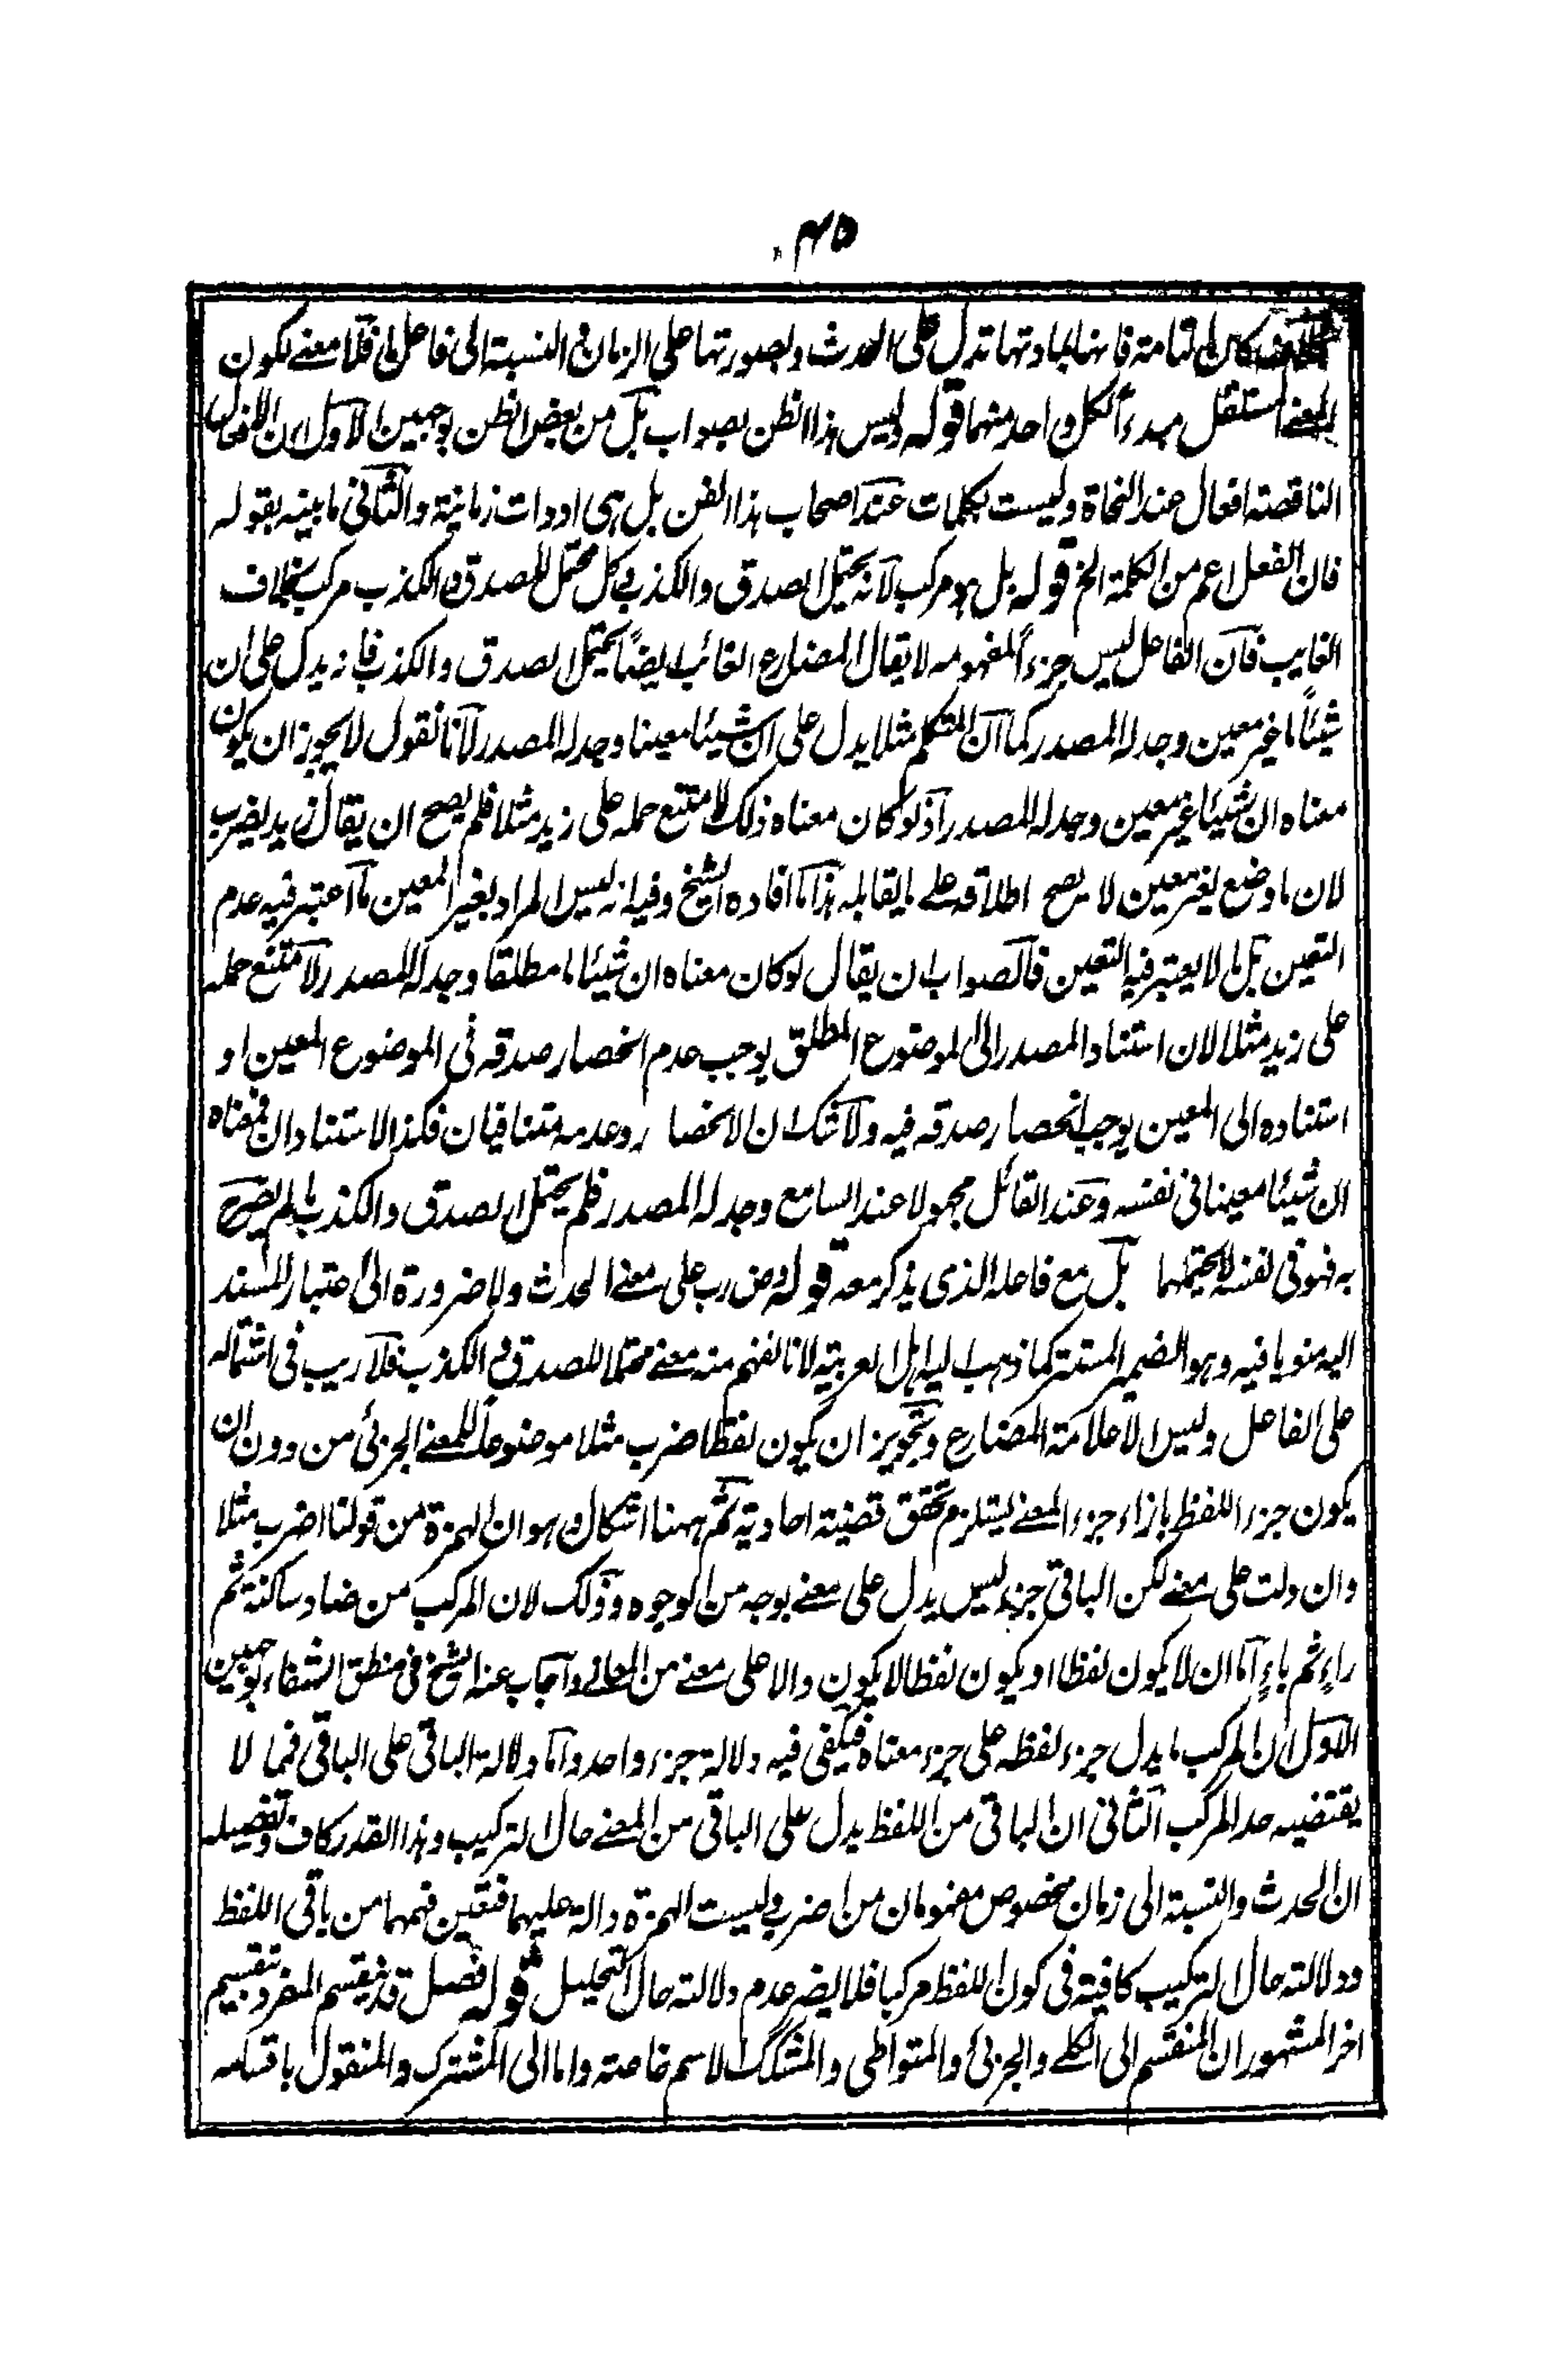 ٤٥
التامة فانها بمادتها تدل على الحدث وبصورتها على الزمان والنسبة الى فاعل ما فلا معنى لكون
المعنى المستقل مبدءاً لكل واحد منهما قوله وليس هذا الظن بصواب بل من بعض الظن بوجهين الاول ان الافعال
الناقصة افعال عند النحاة وليست بكلمات عند اصحاب هذا الفن بل هى ادوات زمانية والثانى ما بينه بقوله
فان الفعل اعم من الكلمة الخ قوله بل هو مركب لانه يحتمل الصدق والكذب وكل محتمل للصدق والكذب مركب بخلاف
الغايب فان الفاعل ليس جزءاً لمفهومه لا يقال المضارع الغائب ايضاً يحتمل الصدق والكذب فانه يدل على ان
شيئاً ما غير معين وجد له المصدر كما ان المتكلم مثلا يدل على ان شيئا معينا وجد له المصدر لانا نقول لا يجوز ان يكون
معناه ان شيئا غير معين وجد له المصدر اذ لو كان معناه ذلك لامتنع حمله على زيد مثلا فلم يصح ان يقال زيد يضرب
لان ما وضع لغير معين لا يصح اطلاقه على ما يقابله هذا ما افاده الشيخ وفيه انه ليس المراد بغير المعين ما اعتبر فيه عدم
التعين بل ما لا يعتبر فيه التعين فالصواب ان يقال لو كان معناه ان شيئا ما مطلقا وجد له المصدر لامتنع حمله
على زيد مثلا لان استناد المصدر الى الموضوع المطلق يوجب عدم انحصار صدقه فى الموضوع المعين او
استناده الى المعين يوجب انحصار صدقه فيه ولا شك ان الانحصار وعدمه متنافيان فكذا الاستنادان فمعناه
ان شيئا معينا فى نفسه وعند القائل مجهولا عند السامع وجد له المصدر فلم يحتمل الصدق والكذب ما لم يصرح
به فهو فى نفسه لا يحتملهما بل مع فاعله الذى يذكر معه قوله وض رب على معنى الحدث ولا ضرورة الى اعتبار المسند
اليه منويا فيه وهو الضمير المستتر كما ذهب اليه اهل العربية لانا نفهم منه معنى محتملا للصدق والكذب فلا ريب فى اشتماله
على الفاعل وليس الا علامة المضارع وتجويز ان يكون لفظ اضرب مثلا موضوعا للمعنى الجزئى من دون ان
يكون جزء اللفظ بازاء جزء المعنى يستلزم تحقق قضية احادية ثم ههنا اشكال وهو ان الهمزة من قولنا اضرب مثلا
وان دلت على معنى لكن الباقى جزء ليس يدل على معنى بوجه من الوجوه وذلك لان المركب من ضاد ساكنة ثم
راءٍ ثم باءٍ اما ان لا يكون لفظا او يكون لفظا لا يكون دالا على معنى من المعانى واجاب عنه الشيخ فى منطق الشفاء بوجهين
الاول ان المركب ما يدل جزء لفظه على جزء معناه فيكفى فيه دلالة جزء واحد واما دلالة الباقى على الباقى فمما لا
يقتضيه حد المركب الثانى ان الباقى من اللفظ يدل على الباقى من المعنى حال التركيب وهذا القدر كاف وتفصيله
ان الحدث والنسبة الى زمان مخصوص مفهومان من اضرب وليست الهمزة دالة عليهما فتعين فهمهما من باقى اللفظ
ودلالته حال التركيب كافية فى كون اللفظ مركبا فلا يضر عدم دلالته حال التحليل قوله فصل قد ينقسم المفرد بتقسيم
اخر المشهور ان المنقسم الى الكلى والجزئى والمتواطى والمشكك الاسم خاصة واما الى المشترك والمنقول باقسامه